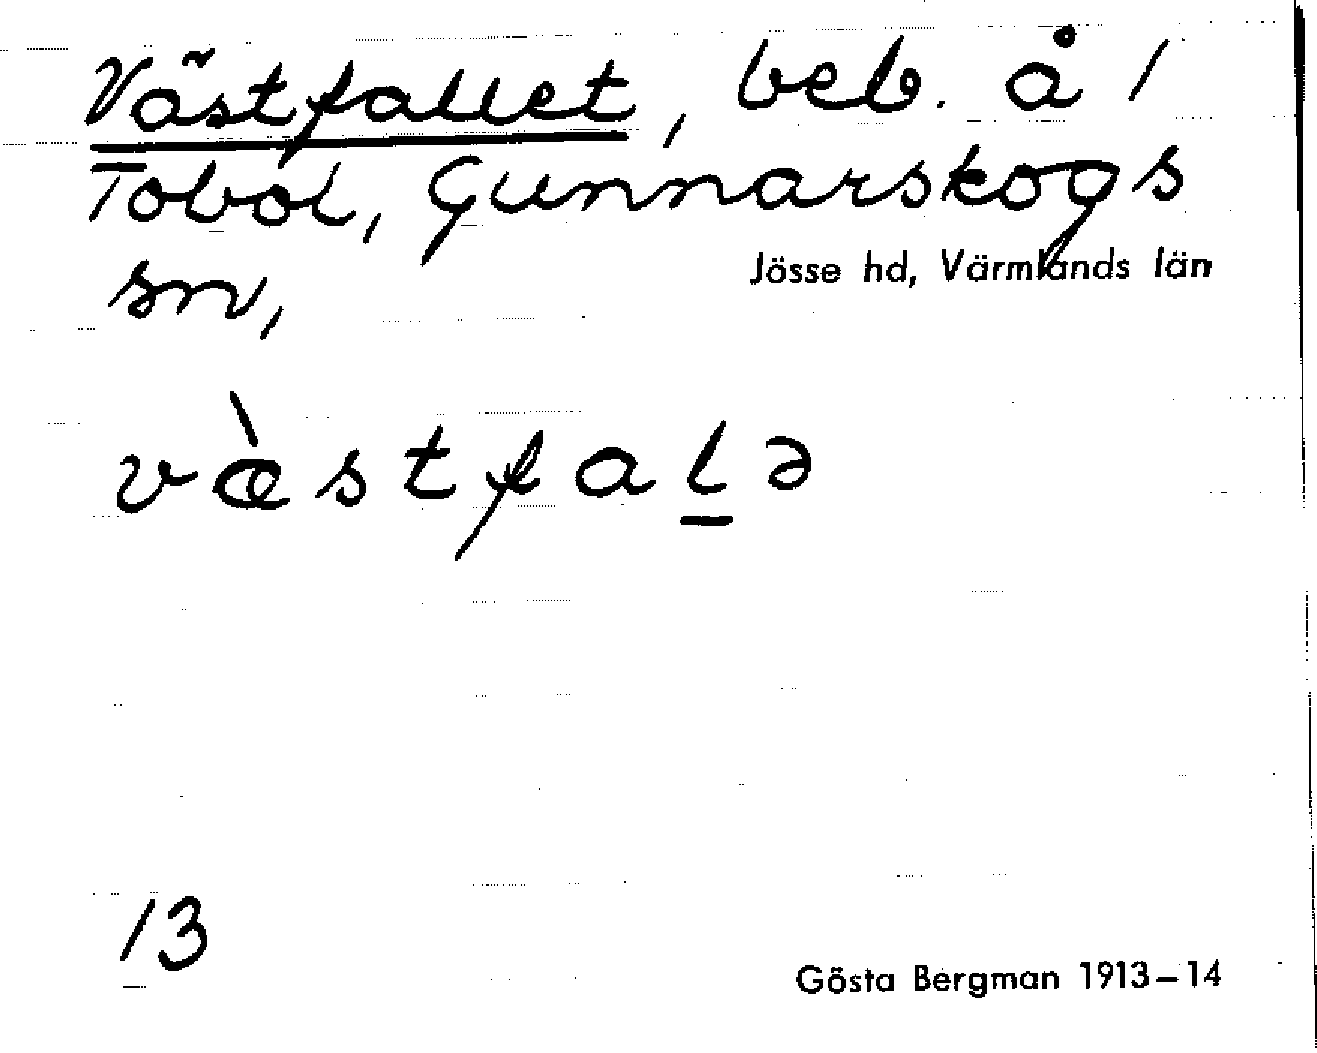 Västfallet, beb. å 1
Tobol, Gunnarskogs
sn,
Jösse hd, Värmlands län
væ̀stfal̲ə
13
Gösta Bergman 1913–14